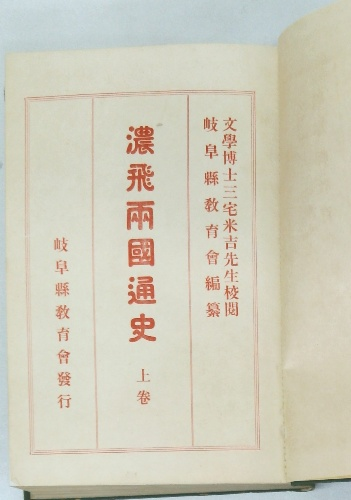 文學博士三宅米吉先生校閲
岐阜縣教育會編纂
濃飛兩國通史
上卷
岐阜縣教育會發行